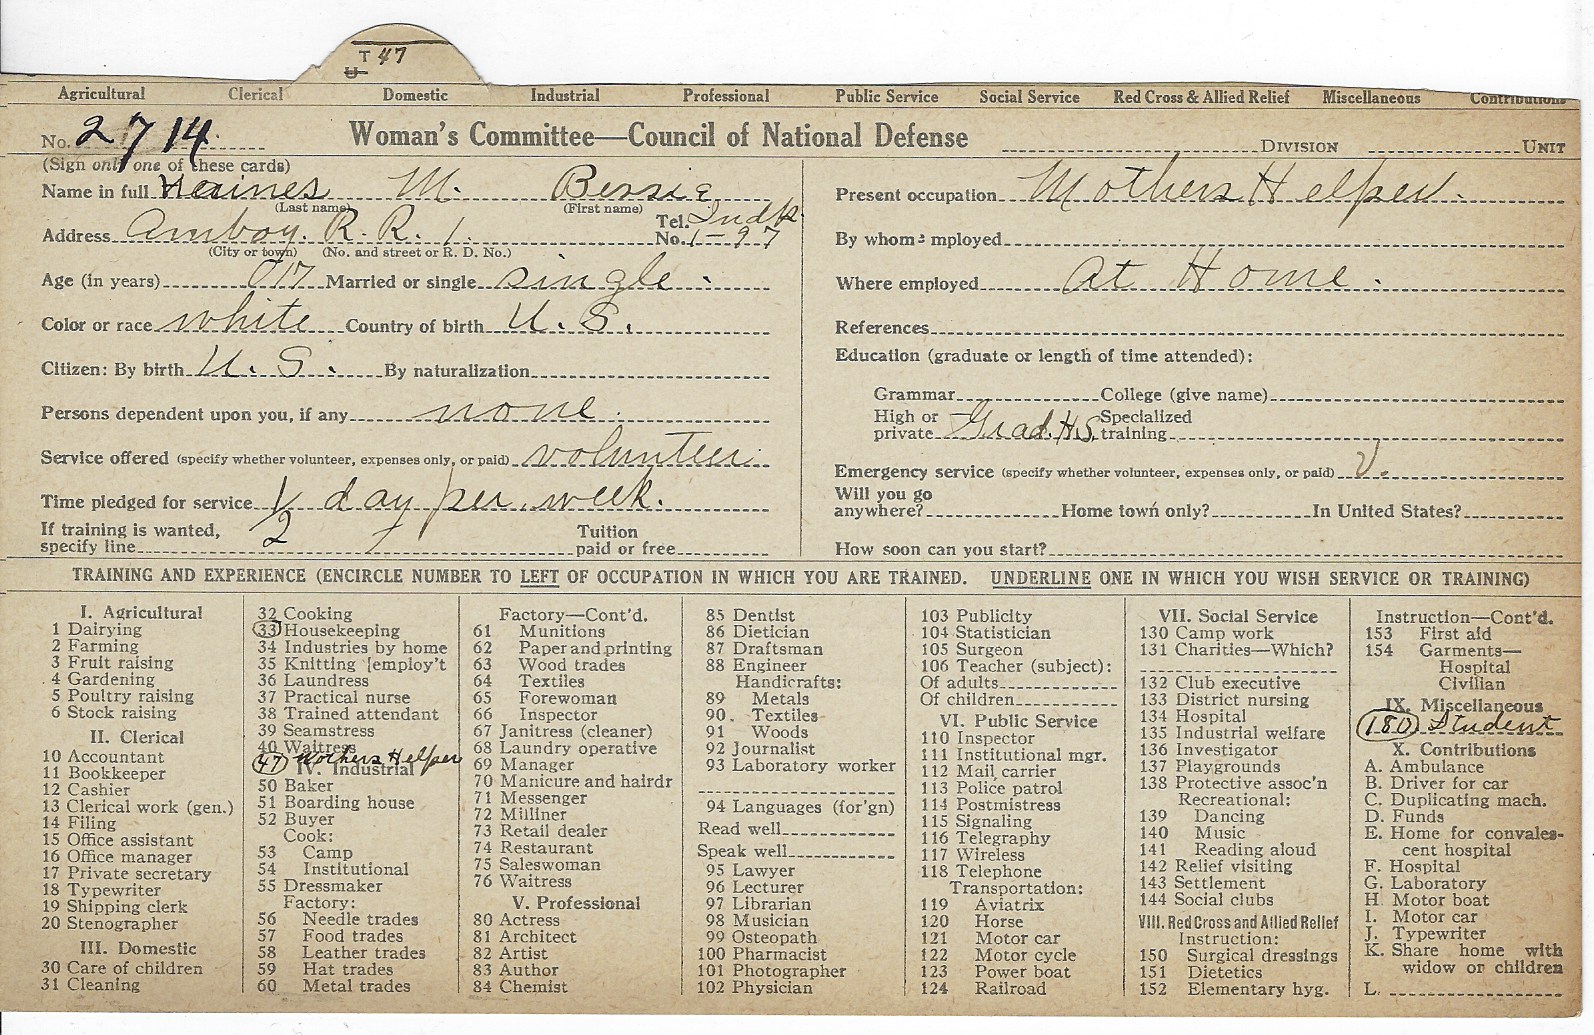 T 47
U
Agricultural Clerical Domestic Industrial Professional Public Service Social Service Red Cross & Allied Relief Miscellaneous Contributions
No. 2714 Woman's Committee—Council of National Defense DIVISION UNIT
(Sign only one of these cards)
Name in full Haines M. Bessie
(Last name) (First name)
Address Amboy. R. R. 1. Tel. No. Indp. 1-97
(City or town) (No. and street or R. D. No.)
Age (in years) 17 Married or single single.
Color or race white Country of birth U. S.
Citizen: By birth U. S. By naturalization
Persons dependent upon you, if any none.
Service offered (specify whether volunteer, expenses only, or paid) volunteer.
Time pledged for service 1/2 day per week.
If training is wanted,
specify line Tuition paid or free
Present occupation Mothers Helper.
By whom employed
Where employed At Home.
References
Education (graduate or length of time attended):
Grammar College (give name)
High or private Grad. H.S. Specialized training
Emergency service (specify whether volunteer, expenses only, or paid) V.
Will you go
anywhere? Home town only? In United States?
How soon can you start?
TRAINING AND EXPERIENCE (ENCIRCLE NUMBER TO LEFT OF OCCUPATION IN WHICH YOU ARE TRAINED. UNDERLINE ONE IN WHICH YOU WISH SERVICE OR TRAINING)
I. Agricultural
1 Dairying
2 Farming
3 Fruit raising
4 Gardening
5 Poultry raising
6 Stock raising
II. Clerical
10 Accountant
11 Bookkeeper
12 Cashier
13 Clerical work (gen.)
14 Filing
15 Office assistant
16 Office manager
17 Private secretary
18 Typewriter
19 Shipping clerk
20 Stenographer
III. Domestic
30 Care of children
31 Cleaning
32 Cooking
33 Housekeeping
34 Industries by home
35 Knitting [employ't
36 Laundress
37 Practical nurse
38 Trained attendant
39 Seamstress
40 Waitress
47 Mothers Helper
IV. Industrial
50 Baker
51 Boarding house
52 Buyer
Cook:
53 Camp
54 Institutional
55 Dressmaker
Factory:
56 Needle trades
57 Food trades
58 Leather trades
59 Hat trades
60 Metal trades
Factory—Cont'd.
61 Munitions
62 Paper and printing
63 Wood trades
64 Textiles
65 Forewoman
66 Inspector
67 Janitress (cleaner)
68 Laundry operative
69 Manager
70 Manicure and hairdr
71 Messenger
72 Milliner
73 Retail dealer
74 Restaurant
75 Saleswoman
76 Waitress
V. Professional
80 Actress
81 Architect
82 Artist
83 Author
84 Chemist
85 Dentist
86 Dietician
87 Draftsman
88 Engineer
Handicrafts:
89 Metals
90. Textiles
91 Woods
92 Journalist
93 Laboratory worker
94 Languages (for'gn)
Read well
Speak well
95 Lawyer
96 Lecturer
97 Librarian
98 Musician
99 Osteopath
100 Pharmacist
101 Photographer
102 Physician
103 Publicity
104 Statistician
105 Surgeon
106 Teacher (subject):
Of adults
Of children
VI. Public Service
110 Inspector
111 Institutional mgr.
112 Mail carrier
113 Police patrol
114 Postmistress
115 Signaling
116 Telegraphy
117 Wireless
118 Telephone
Transportation:
119 Aviatrix
120 Horse
121 Motor car
122 Motor cycle
123 Power boat
124 Railroad
VII. Social Service
130 Camp work
131 Charities—Which?
132 Club executive
133 District nursing
134 Hospital
135 Industrial welfare
136 Investigator
137 Playgrounds
138 Protective assoc'n
Recreational:
139 Dancing
140 Music
141 Reading aloud
142 Relief visiting
143 Settlement
144 Social clubs
VIII. Red Cross and Allied Relief
Instruction:
150 Surgical dressings
151 Dietetics
152 Elementary hyg.
Instruction—Cont'd.
153 First aid
154 Garments—
Hospital
Civilian
IX. Miscellaneous
180 Student
X. Contributions
A. Ambulance
B. Driver for car
C. Duplicating mach.
D. Funds
E. Home for convales-
cent hospital
F. Hospital
G. Laboratory
H. Motor boat
I. Motor car
J. Typewriter
K. Share home with
widow or children
L.